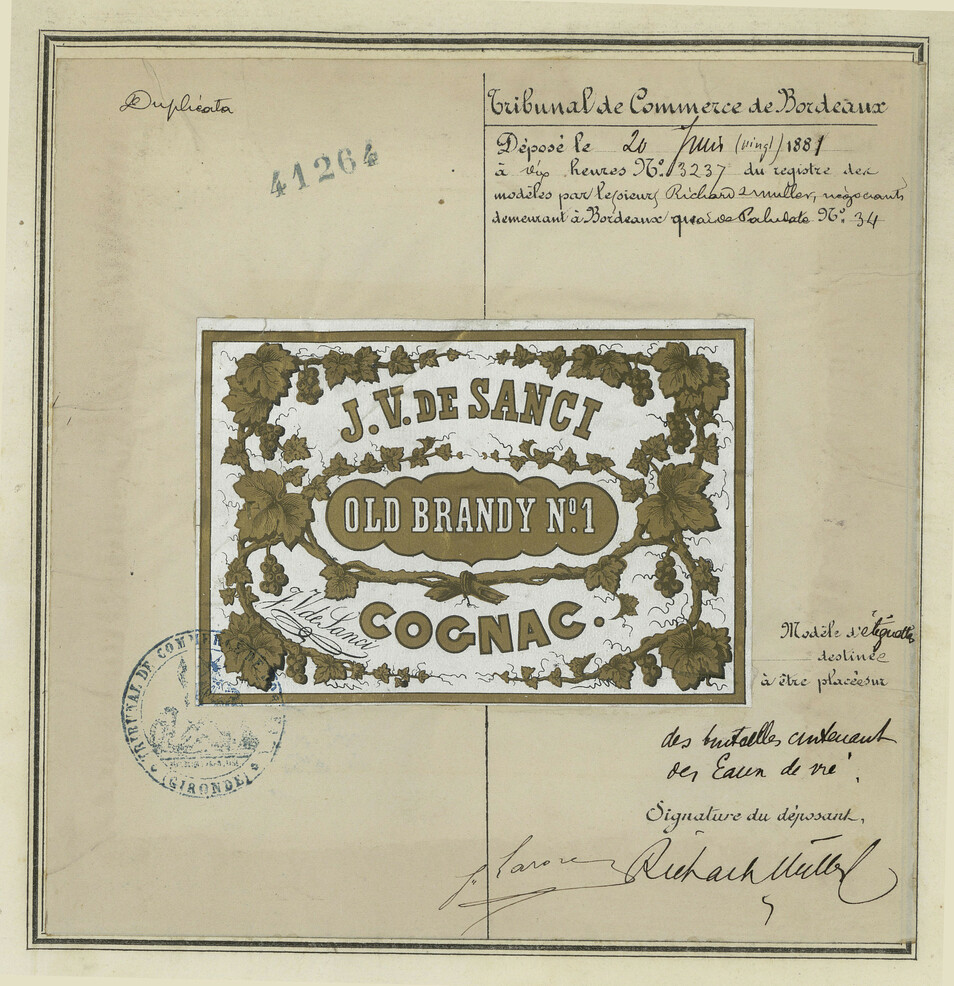 Duplicata
41264
Tribunal de Commerce de Bordeaux
Déposé le 20 Juin (vingt) 1881
à dix heures No. 3237 du registre des
modèles par les sieurs Richard & Muller, négociants
demeurant à Bordeaux quai de Paludate No. 34
J. V. DE SANCI
OLD BRANDY No. 1
COGNAC.
J. V. de Sanci
TRIBUNAL DE COMMERCE DE
(GIRONDE)
Modèle d'étiquette
destinée
à être placée sur
des bouteilles contenant
des Eaux de vie.
Signature du déposant,
Richard Müller